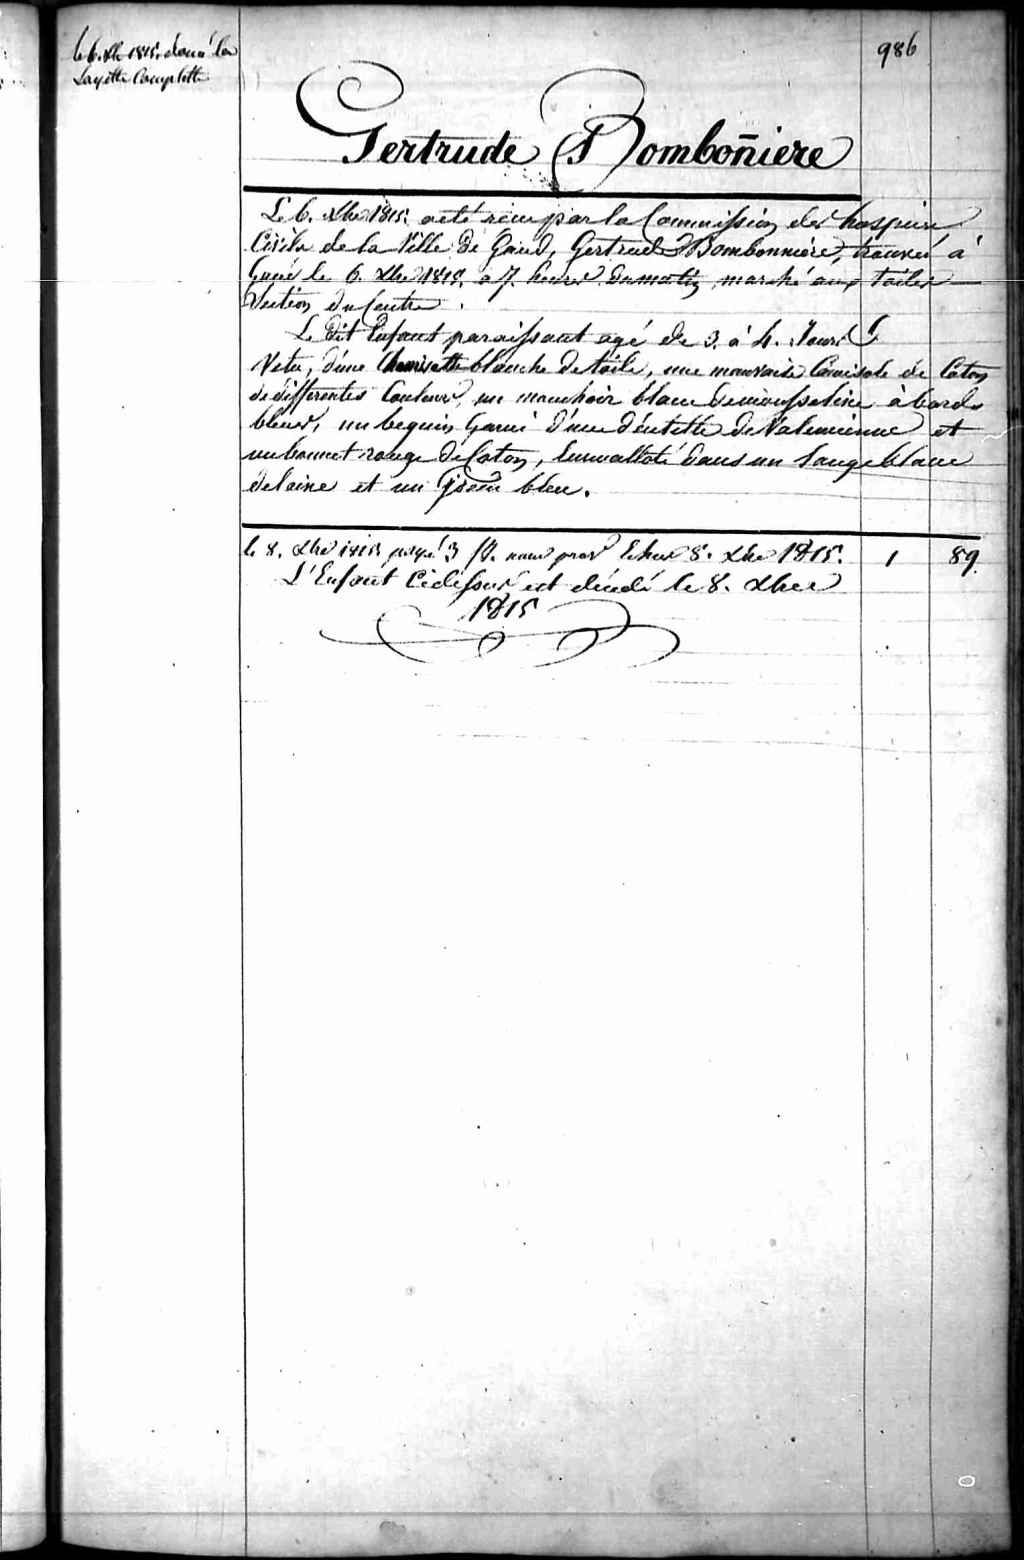 le 6. Xbre 1815. donné la
Layette Complette
986
Gertrude Bomboñiere
Le 6. Xbre 1815. a eté recu par la Commission des hospices
Civils de la Ville de Gand, Gertrude Bombonniere, trouvé à
Gand le 6. Xbre 1815, a 7. heures du matin, marché aux toiles
Section du Centre.
Le dit Enfant paraissant agé de 3. à 4. Jours
Vetu, d'une Chemisette blanche de toile, une mauvaise Camisole de Coton
de differentes Couleurs, un mouchoir blanc de mousseline à bords
bleus, un beguin garni d'une déntelle de Valencienne et
un bonnet rouge de Coton, Emmallotté dans un Lange blanc
de laine et un bleu.
le 8. Xbre 1815. payé 3 Echus 8. Xbre 1815. 1 89.
L'Enfant Cidessus est décédé le 8. Xbre
1815